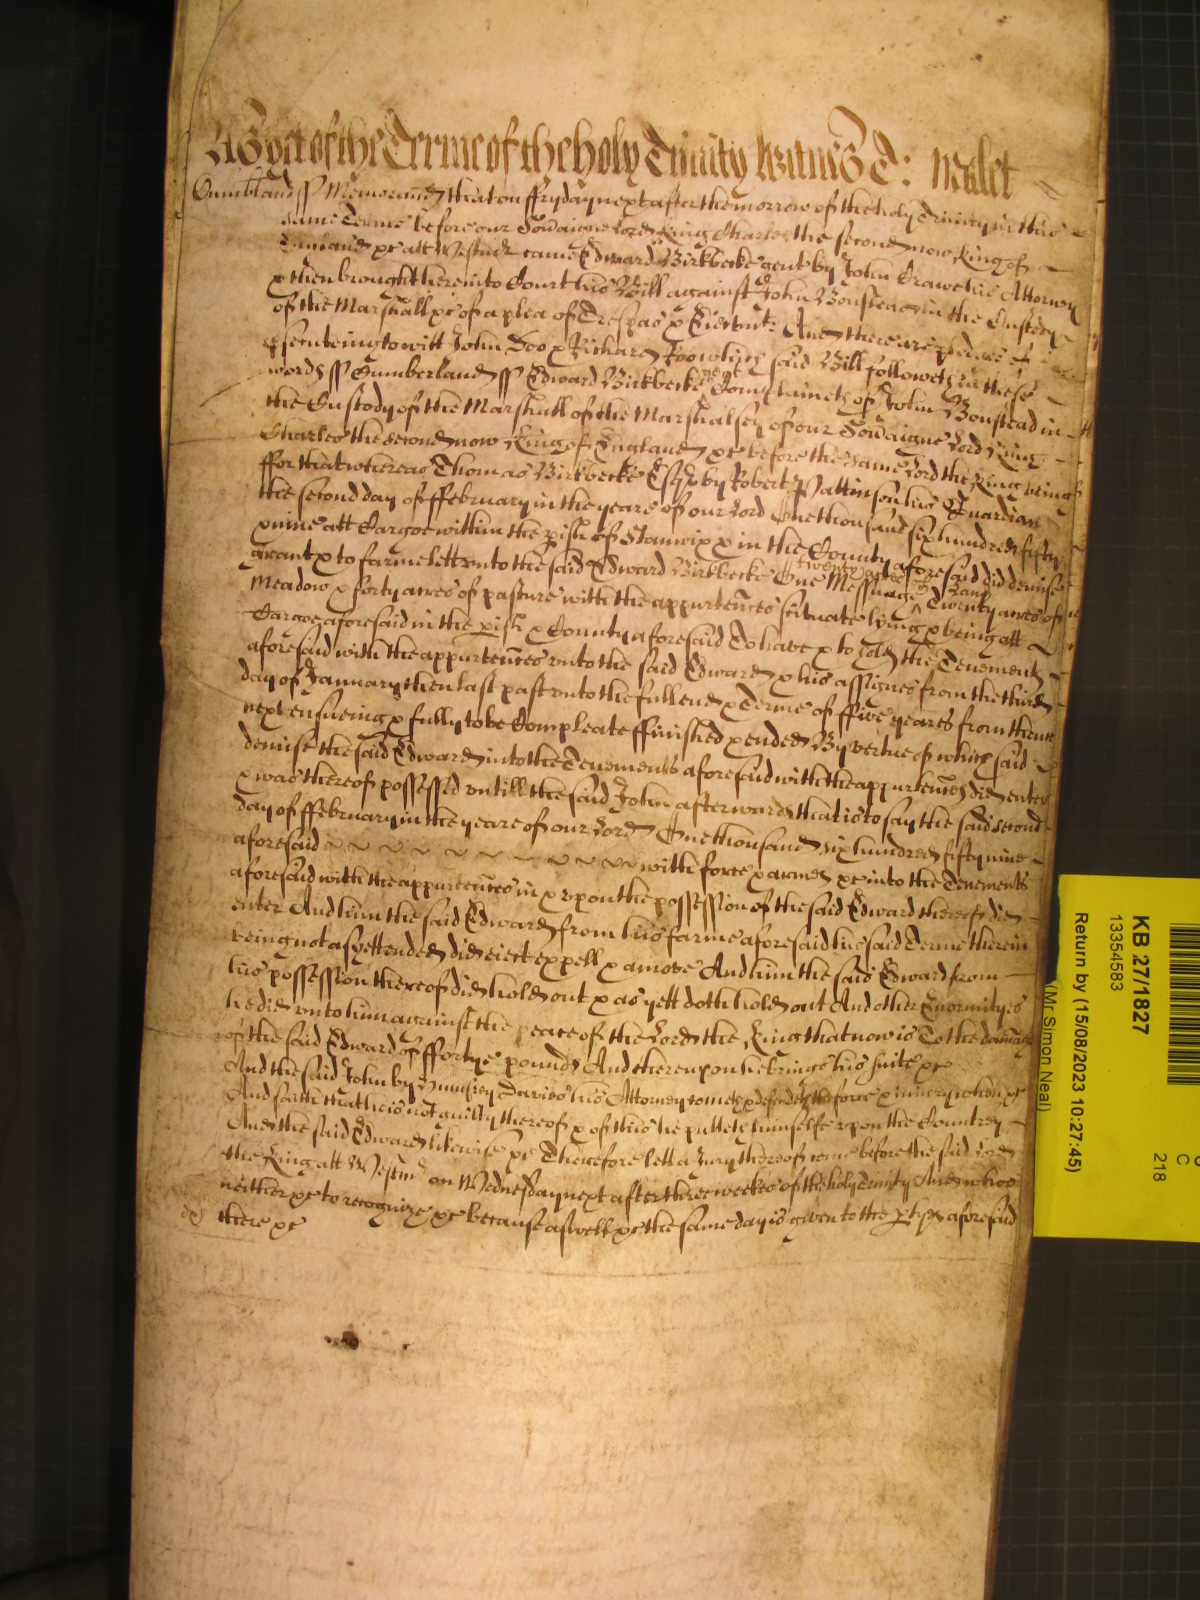 As yet of the Terme of the holy Trinity Witnes T: Malet
Cumbland ss Memorand that on ffryday next after the morrow of the holy Trinity in this
same Terme before our Sovaigne Lord King Charles the second now King of
England &c att Westmr came Edward Birkbecke gent by John Crawe his Attorney
& then brought here into Court his Bill against John Bonstead in the Custody
of the Marshall &c of a plea of Trespas & Eiectmt: And there are pledges of
psecuteing to witt John Doo & Richard Roo which said Bill followeth in these
words ss Cumberland ss Edward Birkbecke gent Complaineth of John Bonstead in
the Custody of the Marshall of the Marshalsey of our Sovaigne Lord King
Charles the second now King of England &c before the same Lord the King being
ffor that whereas Thomas Birkbecke Esqr by Robert Pattinson his Guardian
the second day of ffebruary in the yeare of our Lord One thousand six hundred fifty
& nine att Cargoe within the pish of Stanwix & in the County aforesaid did demise
graunt & to farme lett unto the said Edward Birkbecke One Messuage twenty acres of Land Twenty acres of
Meadow & forty acres of pasture with the appurtences scituate lying & being att
Cargoe aforesaid in the pish & County aforesaid To have & to hold the Tenements
aforesaid with the appurtences unto the said Edward & his assignes from the third
day of January then last past unto the full end & Terme of ffive yeares from thence
next ensueing & fully to be Compleate ffinished & ended By vertue of which said
demise the said Edward into the Tenements aforesaid with the appurtences did enter
& was thereof possessed untill the said John afterwards that is to say the said second
day of ffebruary in the yeare of our Lord One thousand six hundred fifty nine
aforesaid with force & armes &c into the Tenements
aforesaid with the appurtences in & upon the possession of the said Edward thereof did
enter And him the said Edward from his farme aforesaid his said Terme therein
being not as yett ended did eiect expell & amove And him the said Edward from
his possession thereof did hold out & as yett doth hold out And other Enormityes
he did unto him against the peace of the Lord the King that now is To the damage
of the said Edward of ffortye pounds And thereupon he brings his suite &c
And the said John by Humfrey Davies his Attorney comes & defends the force & iniury when &c
And saith that he is not guilty thereof & of this he putteth himselfe upon the Countrey
And the said Edward likewise &c Therefore lett a Jury thereof come before the said Lord
the King att Westmr on Wednesday next after three weekes of the holy Trinity And who
neither &c to recognize &c because aswell &c the same day is given to the ptyes aforesaid
there &c
KB 27/1827
13354583
Return by (15/08/2023 10:27:45)
(Mr Simon Neal)
C
218